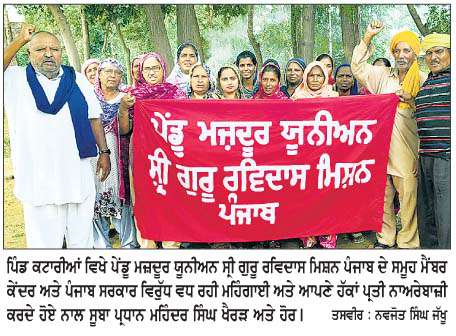 ਪੇਂਡੂ ਮਜ਼ਦੂਰ ਯੂਨੀਅਨ
ਸ੍ਰੀ ਗੁਰੂ ਰਵਿਦਾਸ ਮਿਸ਼ਨ
ਪੰਜਾਬ
ਪਿੰਡ ਕਟਾਰੀਆਂ ਵਿਖੇ ਪੇਂਡੂ ਮਜ਼ਦੂਰ ਯੂਨੀਅਨ ਸ੍ਰੀ ਗੁਰੂ ਰਵਿਦਾਸ ਮਿਸ਼ਨ ਪੰਜਾਬ ਦੇ ਸਮੂਹ ਮੈਂਬਰ
ਕੇਂਦਰ ਅਤੇ ਪੰਜਾਬ ਸਰਕਾਰ ਵਿਰੁੱਧ ਵਧ ਰਹੀ ਮਹਿੰਗਾਈ ਅਤੇ ਆਪਣੇ ਹੱਕਾਂ ਪ੍ਰਤੀ ਨਾਅਰੇਬਾਜ਼ੀ
ਕਰਦੇ ਹੋਏ ਨਾਲ ਸੂਬਾ ਪ੍ਰਧਾਨ ਮਹਿੰਦਰ ਸਿੰਘ ਖੈਰੜ ਅਤੇ ਹੋਰ। ਤਸਵੀਰ : ਨਵਜੋਤ ਸਿੰਘ ਜੱਖੂ